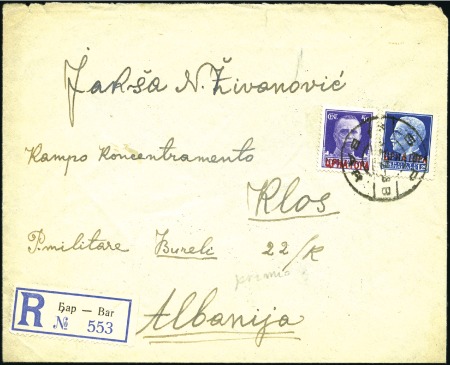 Jakša N. Živanović
Kampo Koncentramento
Klos
P. militare Bureli 22/R
Albanija
ЦРНА ГОРА
BAR
R Бар — Bar
№ 553